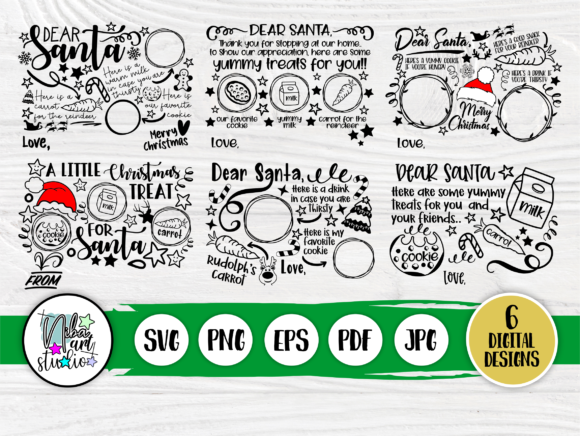 DEAR
Santa
Here is a
warm milk
in case you are
thirsty
Here is a
carrot
for the reindeer
Here is
our favorite
cookie
Merry
Christmas
Love,
DEAR SANTA,
Thank you for stopping at our home,
to show our appreciation, here are some
yummy treats for you!!
MILK
our favorite
cookie
yummy
milk
carrot for the
reindeer
love,
Dear Santa,
HERE'S A GOOD SNACK
FOR YOUR REINDEER!
HERE'S A YUMMY COOKIE
IF YOU'RE HUNGRY
HERE'S A DRINK IF
YOU'RE THIRSTY!
Merry
Christmas
love,
A LITTLE Christmas
TREAT
milk
FOR
Santa
cookie
carrot
FROM
Dear Santa,
Here is a drink
in case you are
Thirsty
Here is my
favorite
cookie
Rudolph's
Carrot
Love,
DEAR SANTA
Here are some yummy
Treats for you and
your friends..
milk
cookie
carrot
love,
Niba
art
studio
SVG
PNG
EPS
PDF
JPG
6
DIGITAL
DESIGNS